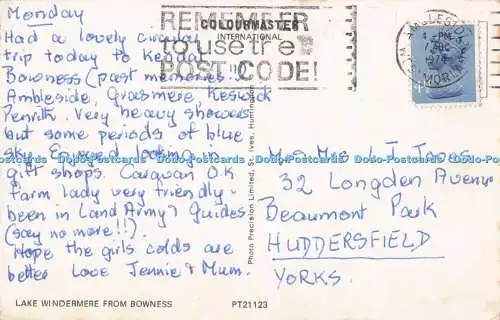 Monday
Had a lovely circular
trip today to Kendal
Bowness (past memories!!
Ambleside, Grasmere Keswick
Penrith. Very heavy showers
but some periods of blue
sky. Enjoyed looking in
gift shops. Caravan O.K
Farm lady very friendly -
been in Land Army & Guides
(say no more!!)
Hope the girls colds are
better Love Jennie & Mum.
LAKE WINDERMERE FROM BOWNESS
REMEMBER
COLOURMASTER
INTERNATIONAL
to use the
POST CODE!
Photo Precision Limited, St. Ives, Huntingdon
4 - PM
1974
Mr & Mrs L T
32 Longden Avenue
Beaumont Park
HUDDERSFIELD
YORKS.
PT21123
Dodo-Postcards Dodo-Postcards Dodo-Postcards Dodo-Postcards Dodo-Postcards Dodo-Postcards